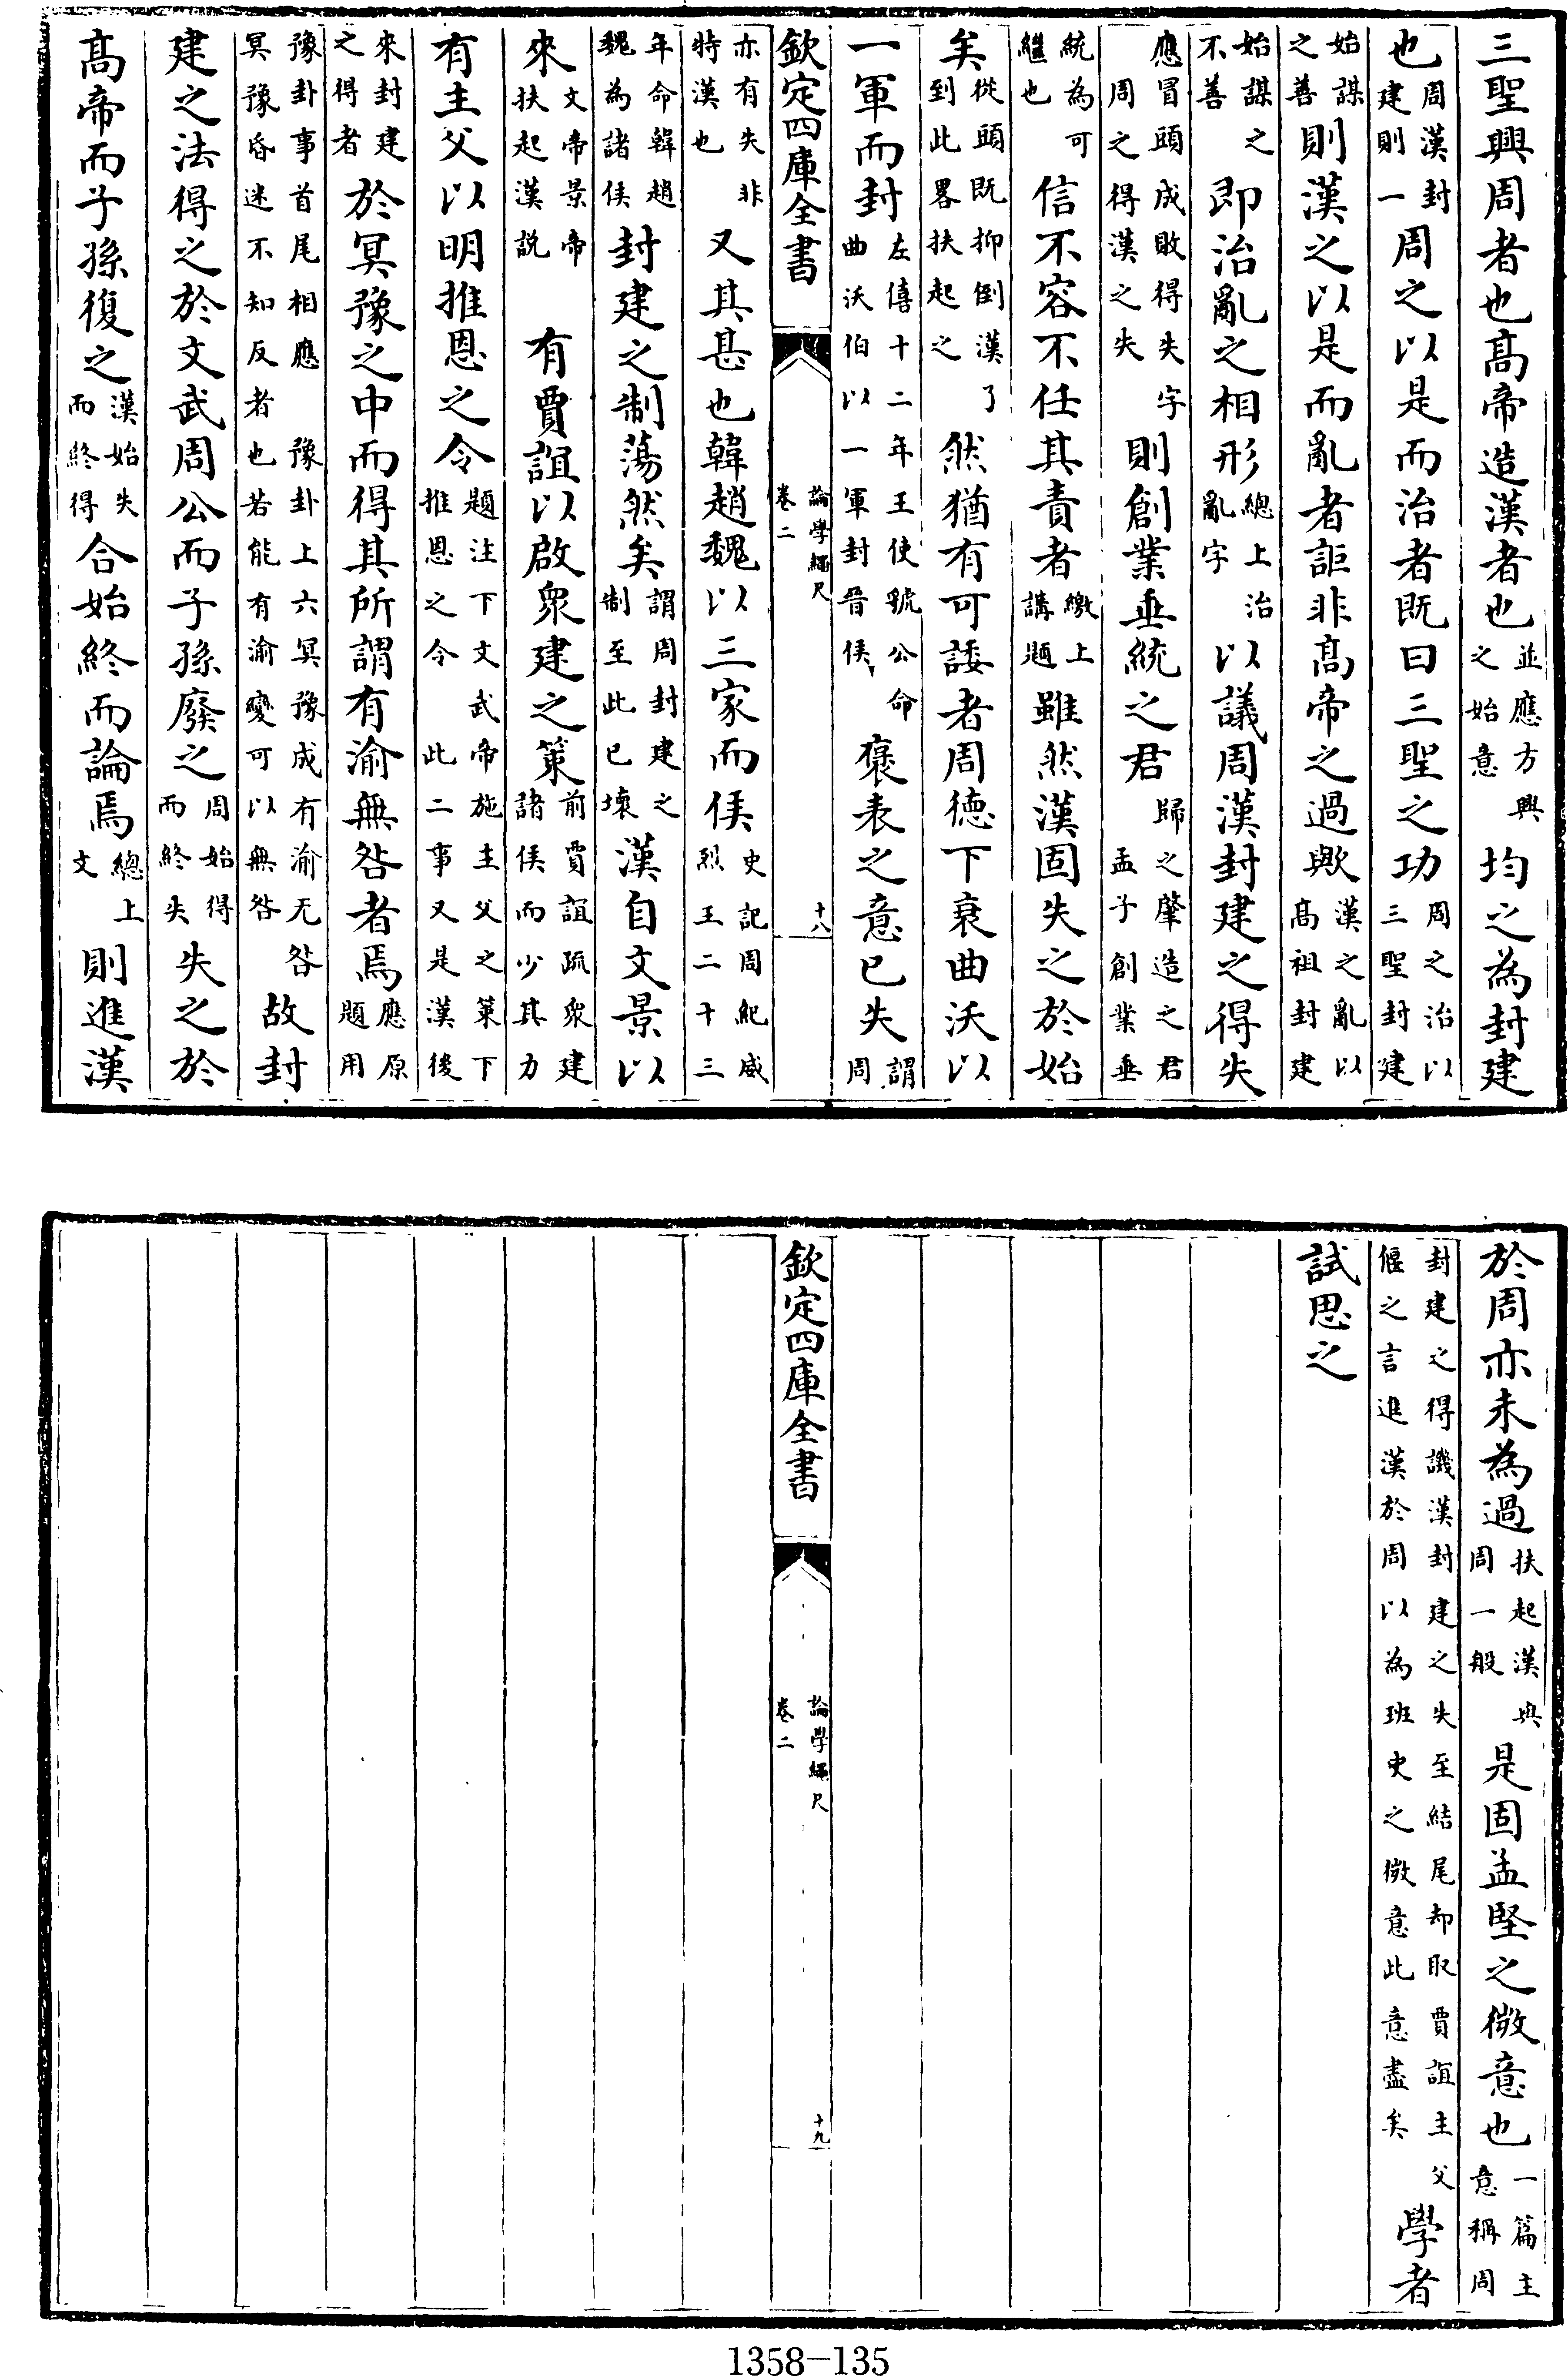 三聖興周者也髙帝造漢者也並應方興之始意均之為封建
也周漢封建則一周之以是而治者既曰三聖之功周之治以三聖封建
始謀之善則漢之以是而亂者詎非髙帝之過歟漢之亂以髙祖封建
始謀之不善即治亂之相形總上治亂字以議周漢封建之得失
應冒頭成敗得失字周之得漢之失則創業垂統之君歸之肇造之君孟子創業垂
統為可繼也信不容不任其責者繳上講題雖然漢固失之於始
矣從頭既抑倒漢了到此畧扶起之然猶有可諉者周德下衰曲沃以
一軍而封左僖十二年王使虢公命曲沃伯以一軍封晉侯褒表之意已失謂周
欽定四庫全書
論學繩尺
卷二
十八
亦有失非特漢也又其甚也韓趙魏以三家而侯史記周紀威烈王二十三
年命韓趙魏為諸侯封建之制蕩然矣謂周封建之制至此已壞漢自文景以
來文帝景帝扶起漢説有賈誼以啟衆建之策前賈誼疏衆建諸侯而少其力
有主父以明推恩之令題注下文武帝施主父之策下推恩之令此二事又是漢後
來封建之得者於冥豫之中而得其所謂有渝無咎者焉應原題用
豫卦事首尾相應冥豫昏迷不知反者也豫卦上六冥豫成有渝无咎若能有渝變可以無咎故封
建之法得之於文武周公而子孫廢之周始得而終失失之於
髙帝而子孫復之漢始失而終得合始終而論焉總上文則進漢
於周亦未為過扶起漢與周一般是固孟堅之微意也一篇主意稱周
封建之得譏漢封建之失至結尾却取賈誼主父偃之言進漢於周以為班史之微意此意盡矣學者
試思之
欽定四庫全書
論學繩尺
卷二
十九
1358-135